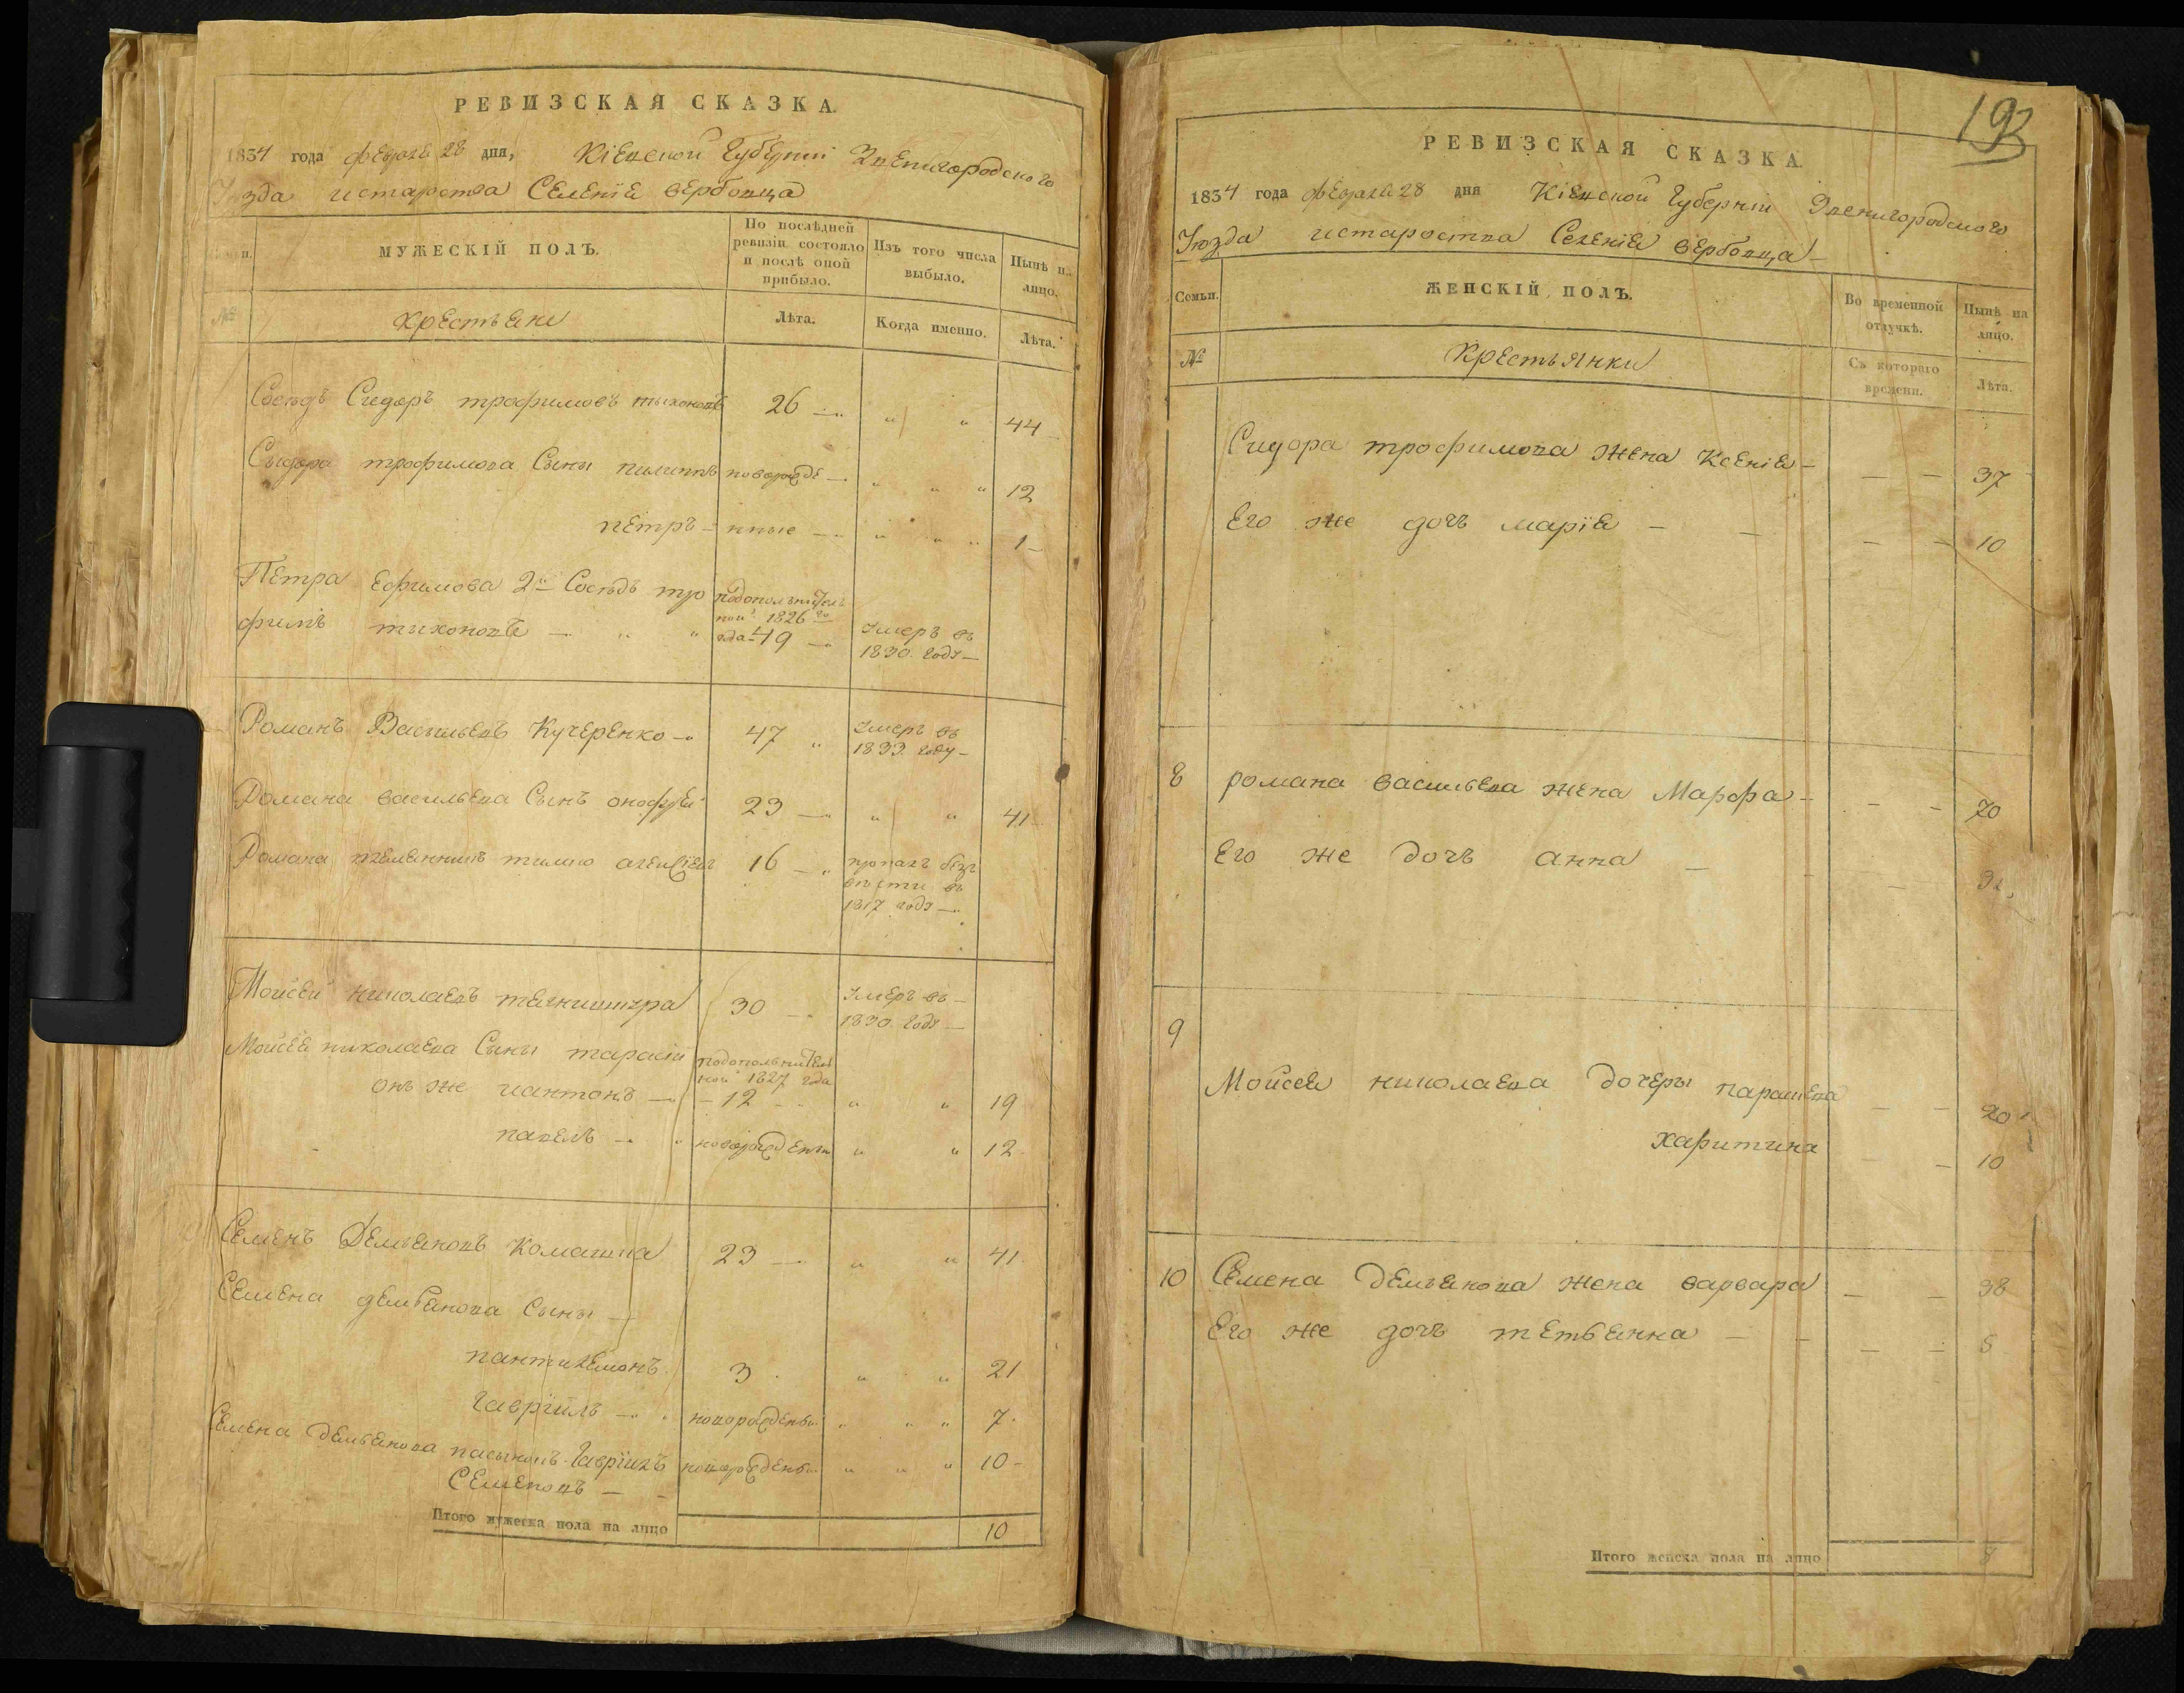 РЕВИЗСКАЯ СКАЗКА.
1834 года февраля 28 дня, Кіевской Губерніи Звенигородского
Уѣзда и староства Селенія вербовца
Семьи. МУЖЕСКІЙ ПОЛЪ. По послѣдней ревизіи состояло и послѣ оной прибыло. Изъ того числа выбыло. Нынѣ на лицо.
№ крестьяне Лѣта. Когда именно. Лѣта.
Сосѣдъ Сидоръ трофимовъ тыхоновъ 26 — „ „ 44
Сыдора трофимова Сыны пилиппъ новорожде — „ „ „ 12
петръ — нные — „ „ „ 1 —
Петра Ефимова 2й Сосѣдъ тро подополнител
ной 1826 го
фимъ тихоновъ — „ „ ода 49 — Умеръ въ
1830. году —
Романъ Васильевъ Кучеренко — 47 „ Умеръ въ
1833. году —
Романа васильева Сынъ онофрей 23 — „ „ 41
Романа племенникъ 16 — пропалъ безъ
вѣсти въ
1817 году —
Мойсей николаевъ 30 — Умеръ въ —
1830. году —
Мойсея николаева Сыны тарасій подополнител
ной 1827 года
онъ же и антонъ — — 12 — „ „ 19
павелъ — „ новорожденъ „ „ 12
Семенъ Демьяновъ Комашка 23 — „ „ 41
Семена демьянова Сыны —
пантилемонъ 3 „ „ 21
Гавріилъ — новорожденъ „ „ „ 7.
Семена демьянова пасынокъ Гавріилъ новорожденъ „ „ „ 10 —
Семеновъ —
Итого мужеска пола на лицо 10
193
РЕВИЗСКАЯ СКАЗКА.
1834 года февраля 28 дня Кіевской Губерніи Звенигородского
Уѣзда и староства Селенія вербовца —
Семьи. ЖЕНСКІЙ ПОЛЪ. Во временной отлучкѣ. Нынѣ на лицо.
№ Крестьянки Съ котораго времени. Лѣта.
Сидора трофимова жена Ксенія — — — 37
Его же дочъ марія — — — — 10
8 романа васильева жена Марфа — — — 70
Его же дочъ анна — — —
9
Мойсея николаева дочеры парашева — — 20
харитина — — 10
10 Семена демьянова жена варвара — — 38
Его же дочъ тетьянна — — — —
Итого женска пола на лицо 8